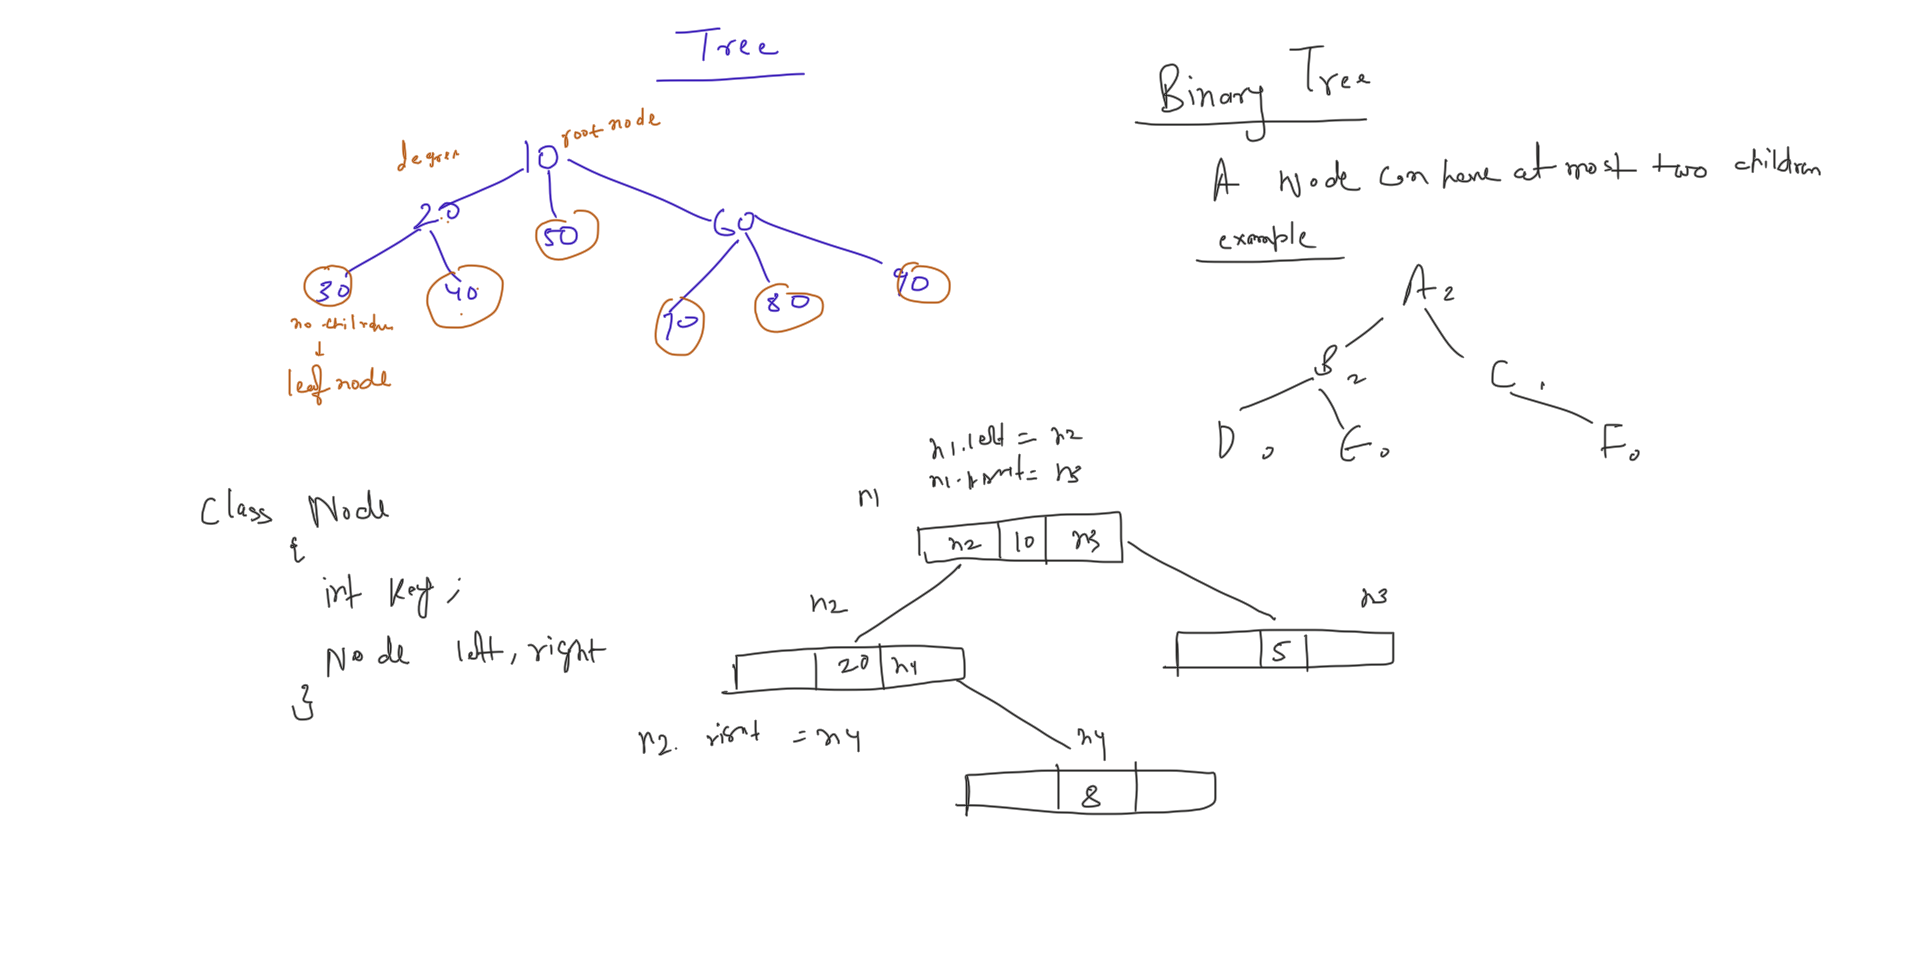 Tree
degree
10
root node
20
50
60
30
40
70
80
90
no children
leaf node
Binary Tree
A Node can have at most two children
example
A 2
B 2
C 1
D 0
E 0
F 0
Class Node
{
int key;
Node left, right
}
n1.left = n2
n1.right = n3
n1
n2 10 n3
n2
n3
20 n4
5
n2. right = n4
n4
8